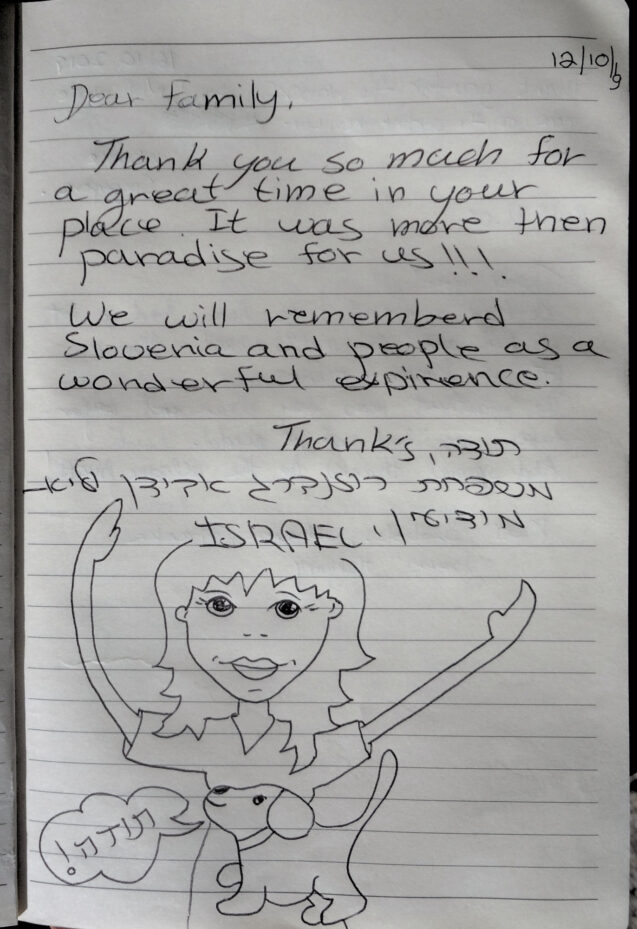 12/10/19
Dear Family,
Thank you so much for
a great time in your
place. It was more then
paradise for us!!!.
We will rememberd
Slovenia and people as a
wonderful expirience.
Thank's, תודה
משפחת רוזנברג אבידן
מודיעין, ISRAEL
תודה!